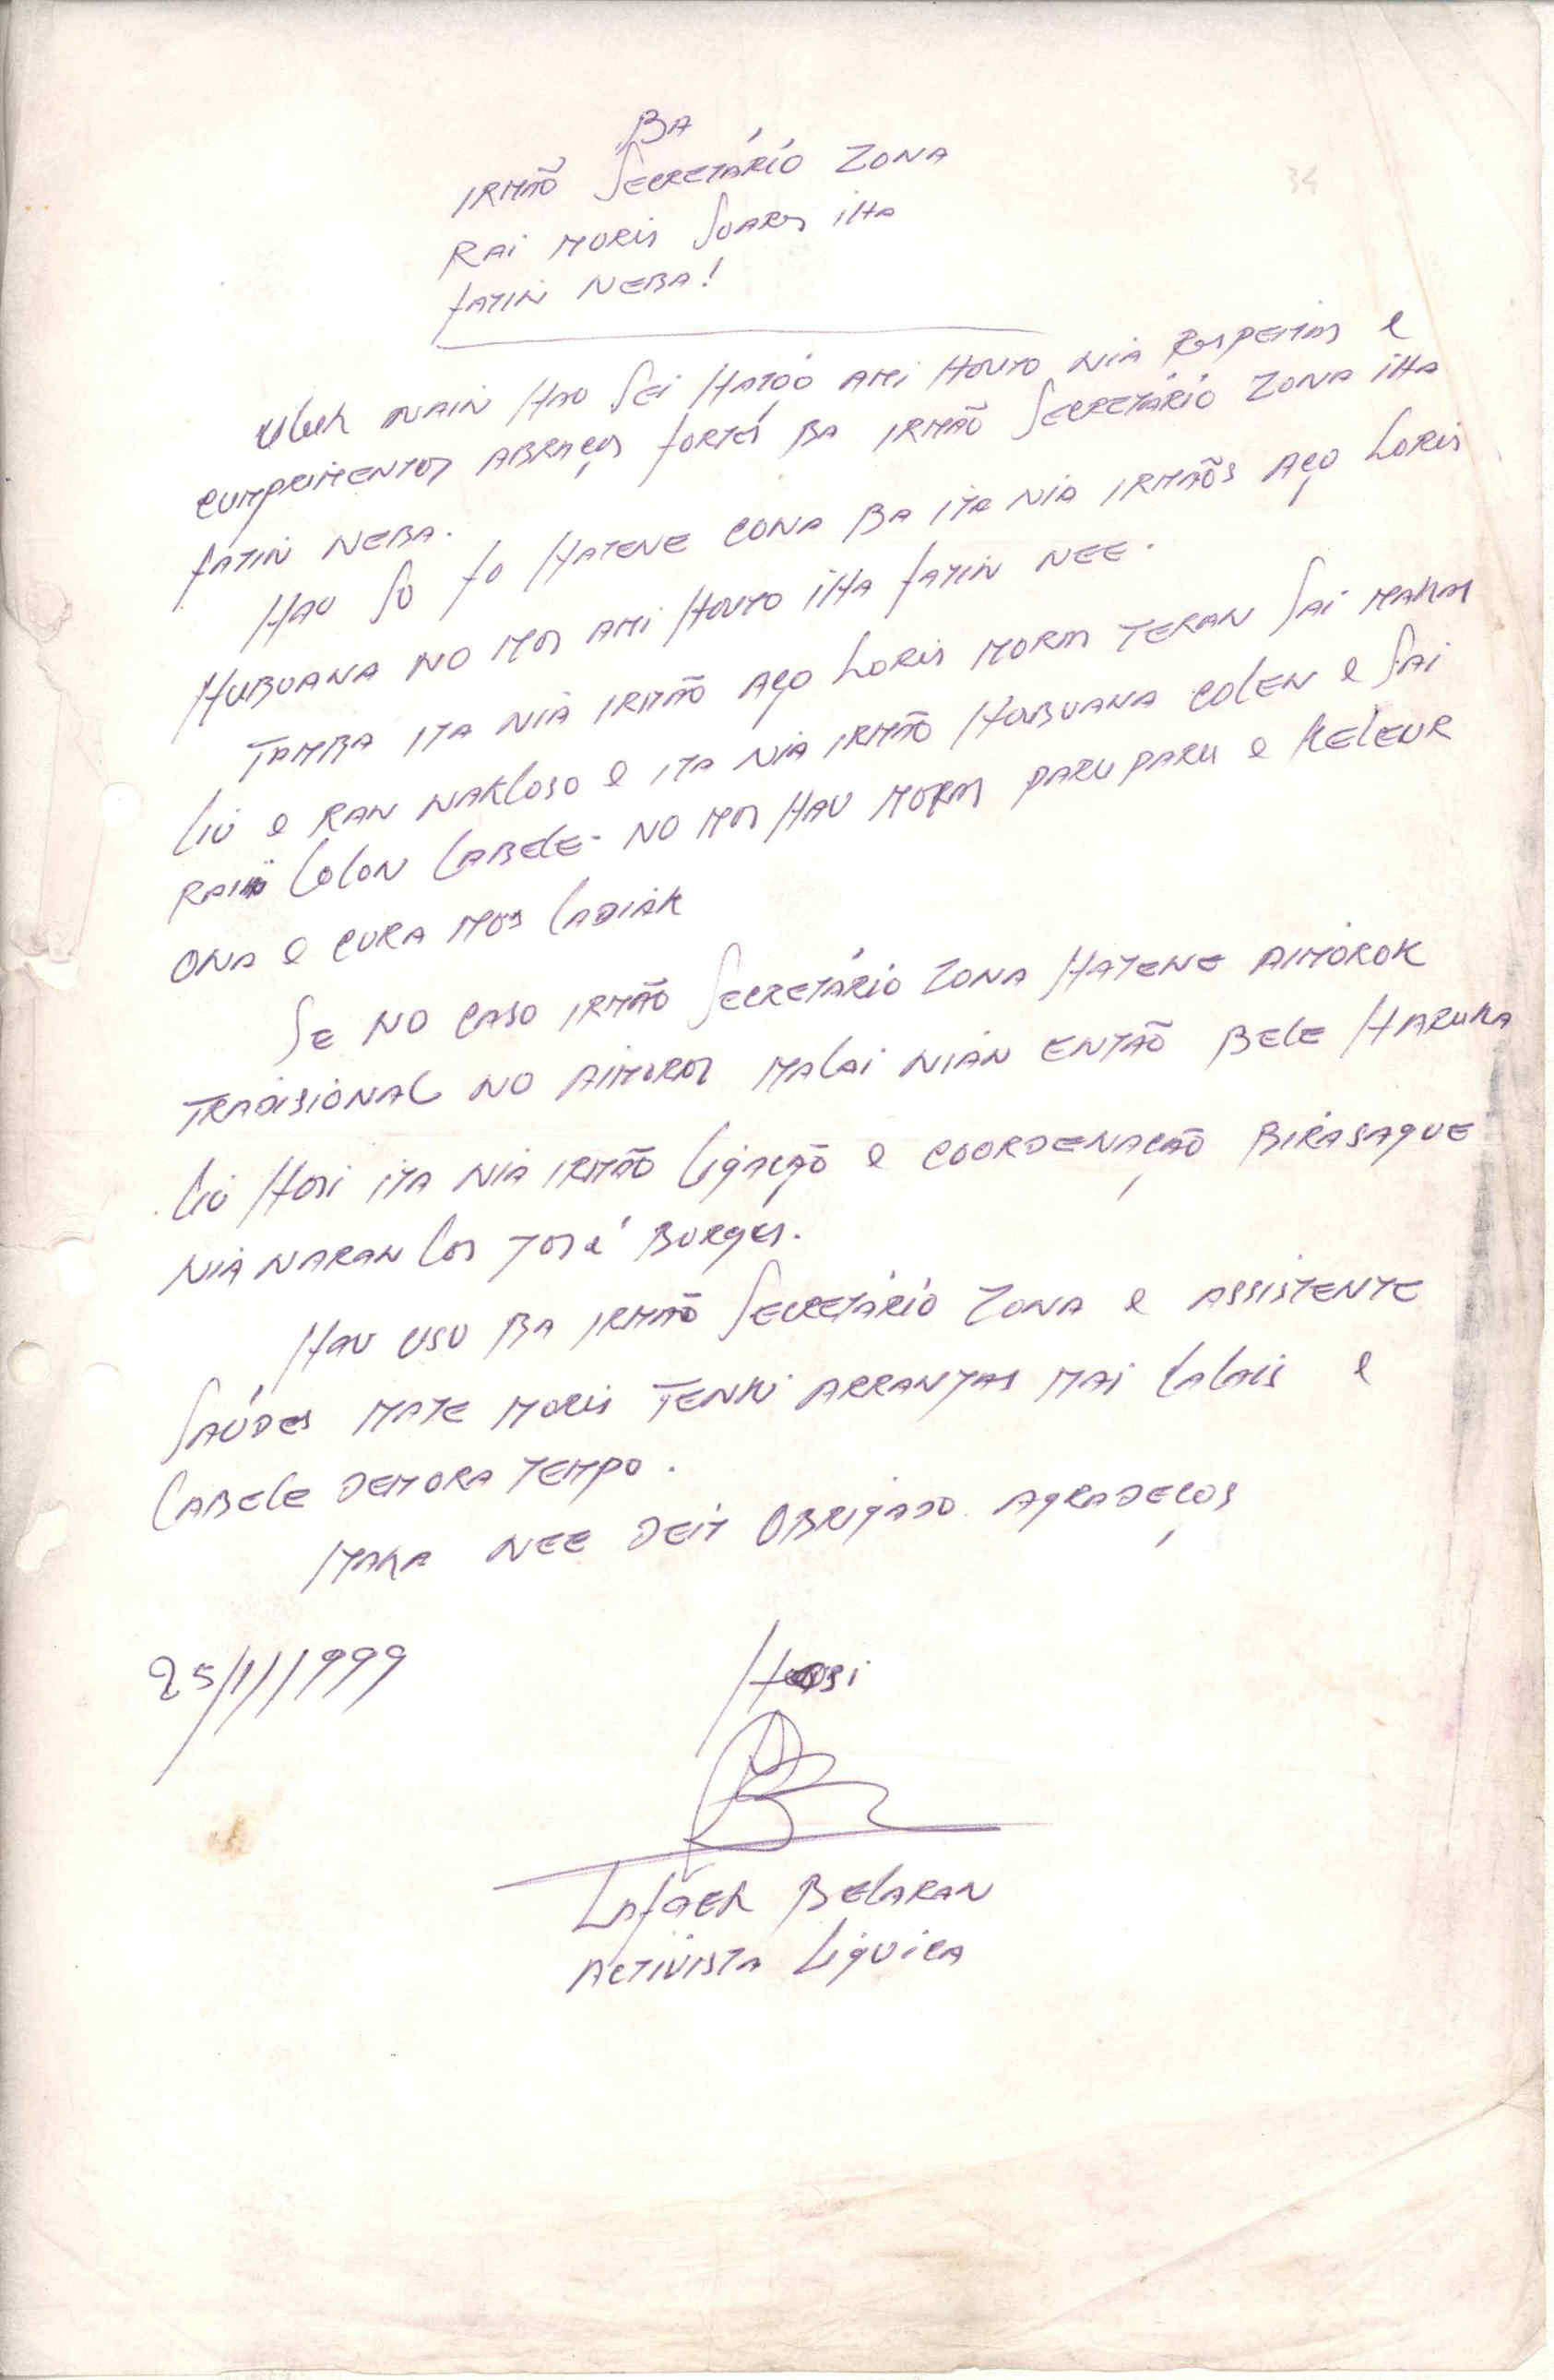 BA
IRMÃO SECRETÁRIO ZONA
RAI MORIS SOARES IHA
FATIN NEBA!
34
ULUK NAIN HAU SEI HATÓO AMI HOUTO NIA RESPEITOS E
CUMPRIMENTOS ABRAÇOS FORTES BA IRMÃO SECRETÁRIO ZONA IHA
FATIN NEBA.
HAU SO FO HATENE CONA BA ITA NIA IRMÃOS AÇO LORIS
HUBUANA NO MOS AMI HOUTO IHA FATIN NEE.
TAMBA ITA NIA IRMÃO AÇO LORIS MORAS TERAN SAI MAKAS
LIU E RAN NAKLOSO E ITA NIA IRMÃO HOUBUANA COLEN E SAI
RAI LOLON LABELE. NO MOS HAU MORAS PARU PARU E KELEUR
ONA E CURA MOS LADIAK
SE NO CASO IRMÃO SECRETÁRIO ZONA HATENE AIMOROK
TRADISIONAL NO AIMOROS MALAI NIAN ENTÃO BELE HARUKA
LIU HOSI ITA NIA IRMÃO LIGAÇÃO E COORDENAÇÃO BIRASAQUE
NIA NARAN LOS JOSÉ BORGES.
HAU USU BA IRMÃO SECRETÁRIO ZONA E ASSISTENTE
SAÚDES MATE MORIS TENKI ARRANJAS MAI LALAIS E
LABELE DEMORA TEMPO.
MAKA NEE DEIT OBRIGADO AGRADEÇOS
25/1/1999
HOSI
LAFAEK BELARAN
ACTIVISTA LIQUICA